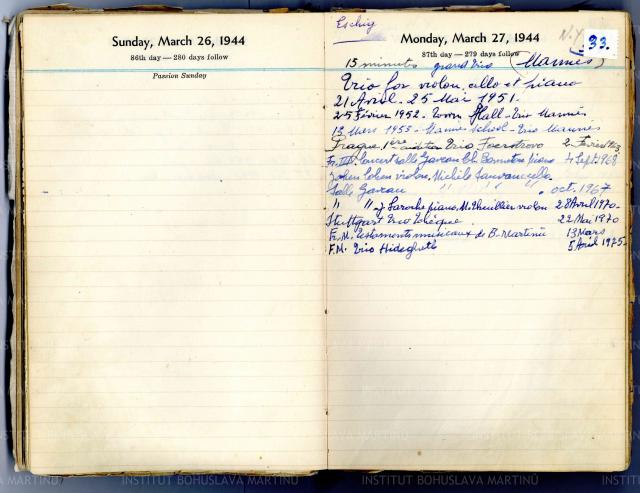 Sunday, March 26, 1944
86th day — 280 days follow
Passion Sunday
Eschig
Monday, March 27, 1944
87th day — 279 days follow
N.Y.
33.
15 minutes grand trio (Mannes)
Trio for violon, cello et piano
21 Avril - 25 Mai 1951.
25 Février 1952 - Town Hall - Trio Mannes
13 Mars 1955 - Mannes School - Trio Mannes
Prague, 1ère audition Trio Foerstrovo 2 Février
Fr. III. Concert salle Gaveau piano 4 Sept 1963
Yohen Cohen violon, Michèle cello
Salle Gaveau " " " " oct. 1967
" " J. Laroche piano, M. violon 28 Avril 1970
Stuttgart Trio tchèque 22 Mai 1970
Fr. M. Testaments musicaux de B. Martinů 13 Mars
F.M. Trio Hidegheti 5 Avril 1975
INSTITUT BOHUSLAVA MARTINŮ